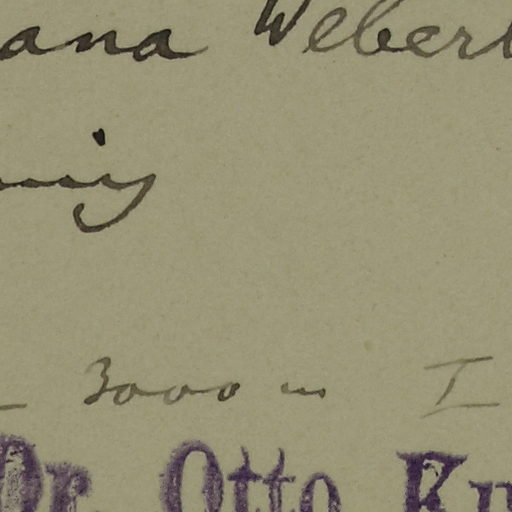 ana Weberb
3000 m I
Dr. Otto Ku